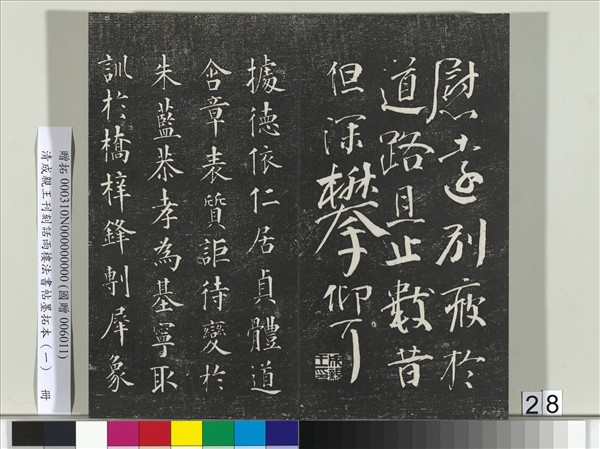 慰遠列疲於
道路且止數昔
但深攀仰
據德依仁居貞體道
含章表質詎待變於
朱藍恭孝為基寧取
訓於橋梓鋒剸犀象
贈拓 000310N000000000 (國贈 006011)
清成親王刊刻話雨樓法書帖墨拓本（一） 冊
28